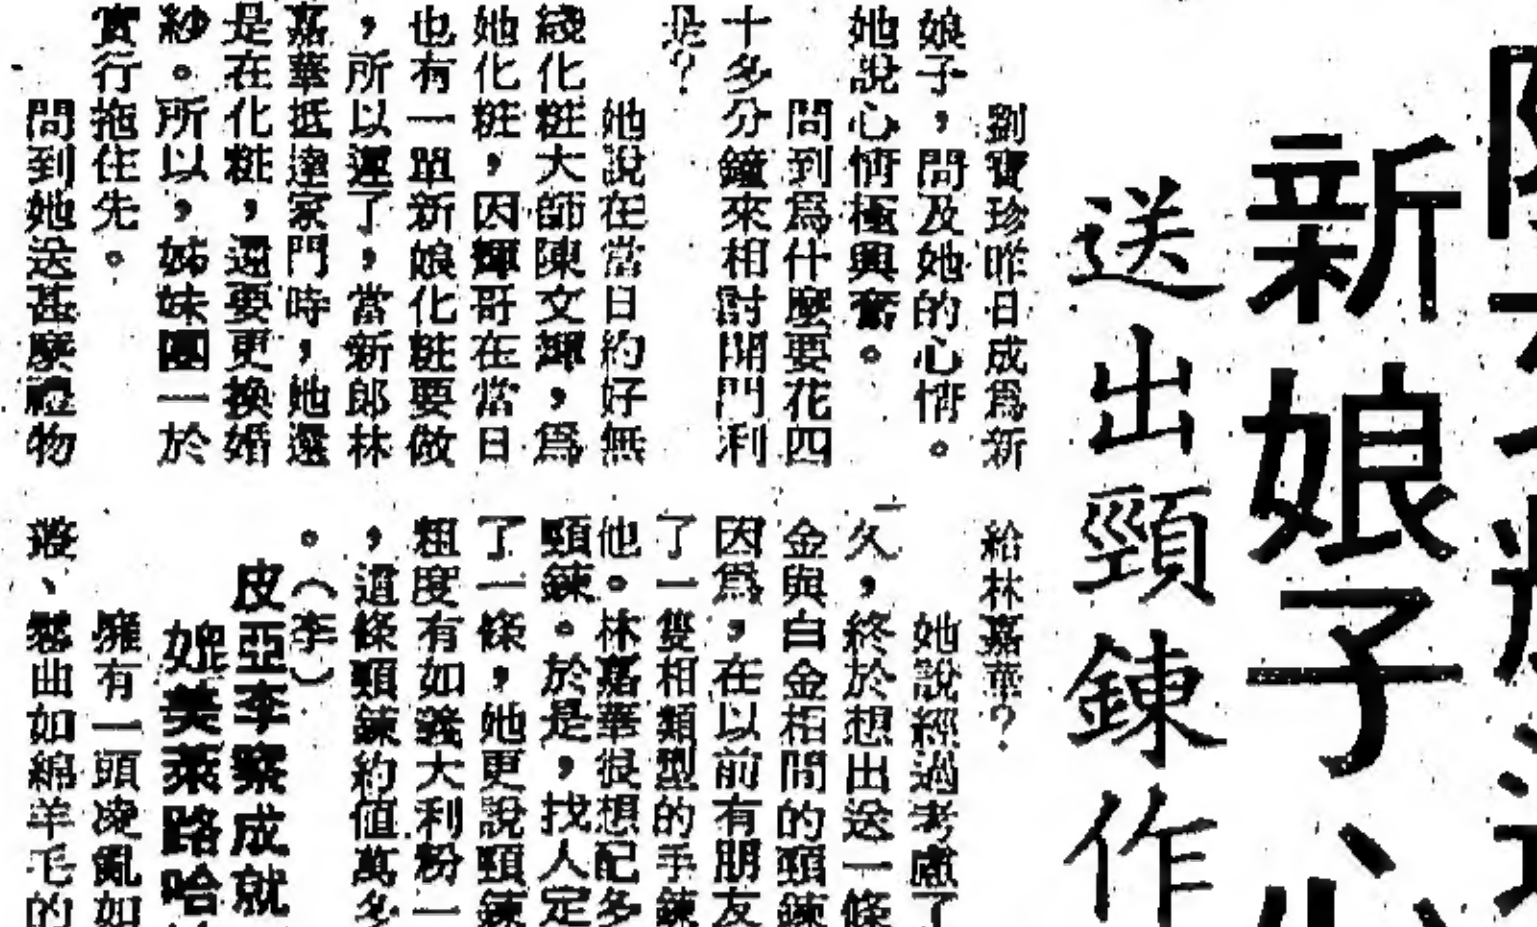 新娘子心
送出頸鍊作
劉寶珍昨日成爲新
娘子，問及她的心情。
她說心情極興奮。
問到爲什麼要花四
十多分鐘來相討開門利
是？
她說在當日約好無
綫化粧大師陳文輝，爲
她化粧，因輝哥在當日
也有一單新娘化粧要做
，所以遲了，當新郎林
嘉華抵達家門時，她還
是在化粧，還要更換婚
紗。所以，姊妹團一於
實行拖住先。
問到她送甚麼禮物
給林嘉華？
她說經過考慮了
久，終於想出送一條
金與白金相間的頸鍊
因爲，在以前有朋友
了一隻相類型的手鍊
他。林嘉華很想配多
頸鍊。於是，找人定
了一條，她更說頸鍊
粗度有如義大利粉一
，這條頸鍊約值萬多
。（李）
皮亞李察成就
妮美萊路哈
擁有一頭凌亂如
叢、鬈曲如綿羊毛的